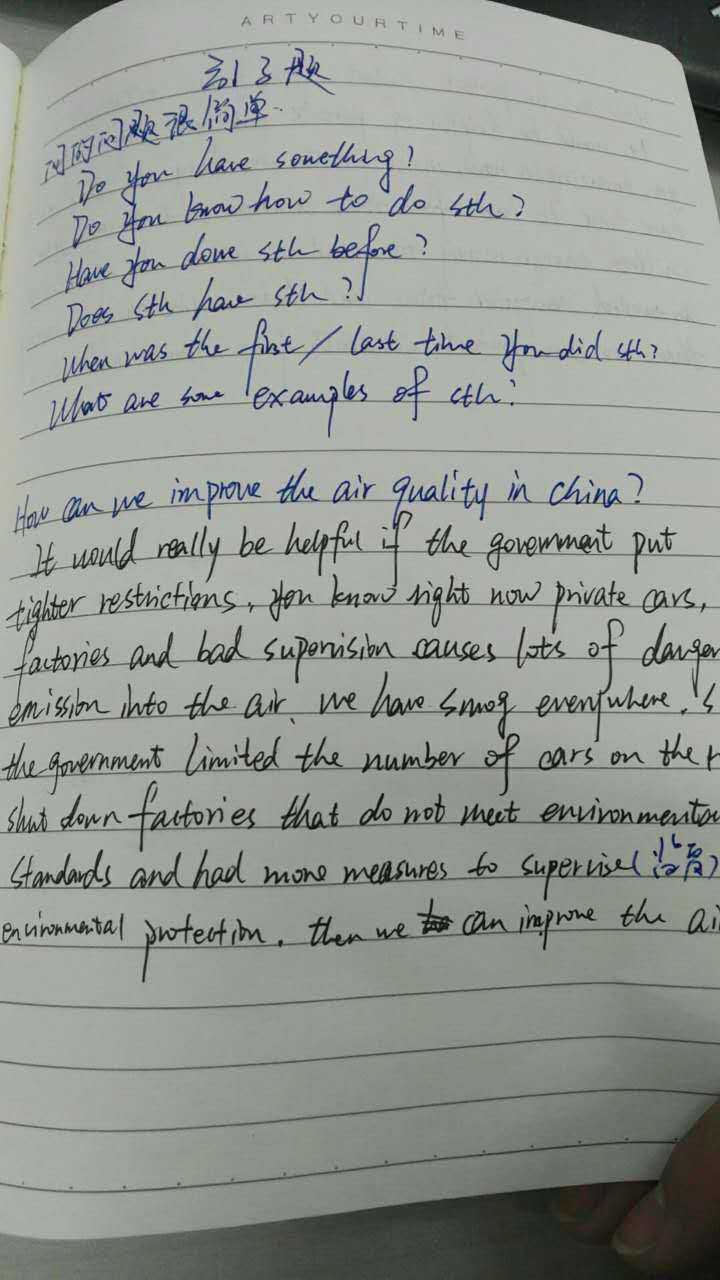 ARTYOURTIME
问的问题很简单.
Do you have something?
Do you know how to do sth?
Have you done sth before?
Does sth have sth?
When was the first / last time you did sth?
What are some examples of sth?
How can we improve the air quality in china?
It would really be helpful if the government put
tighter restrictions, you know right now private cars,
factories and bad supervision causes lots of danger
emission into the air, we have smog everywhere.
the government limited the number of cars on the
shut down factories that do not meet environmenta
standards and had more measures to supervise
environmental protection. then we can improve the ai